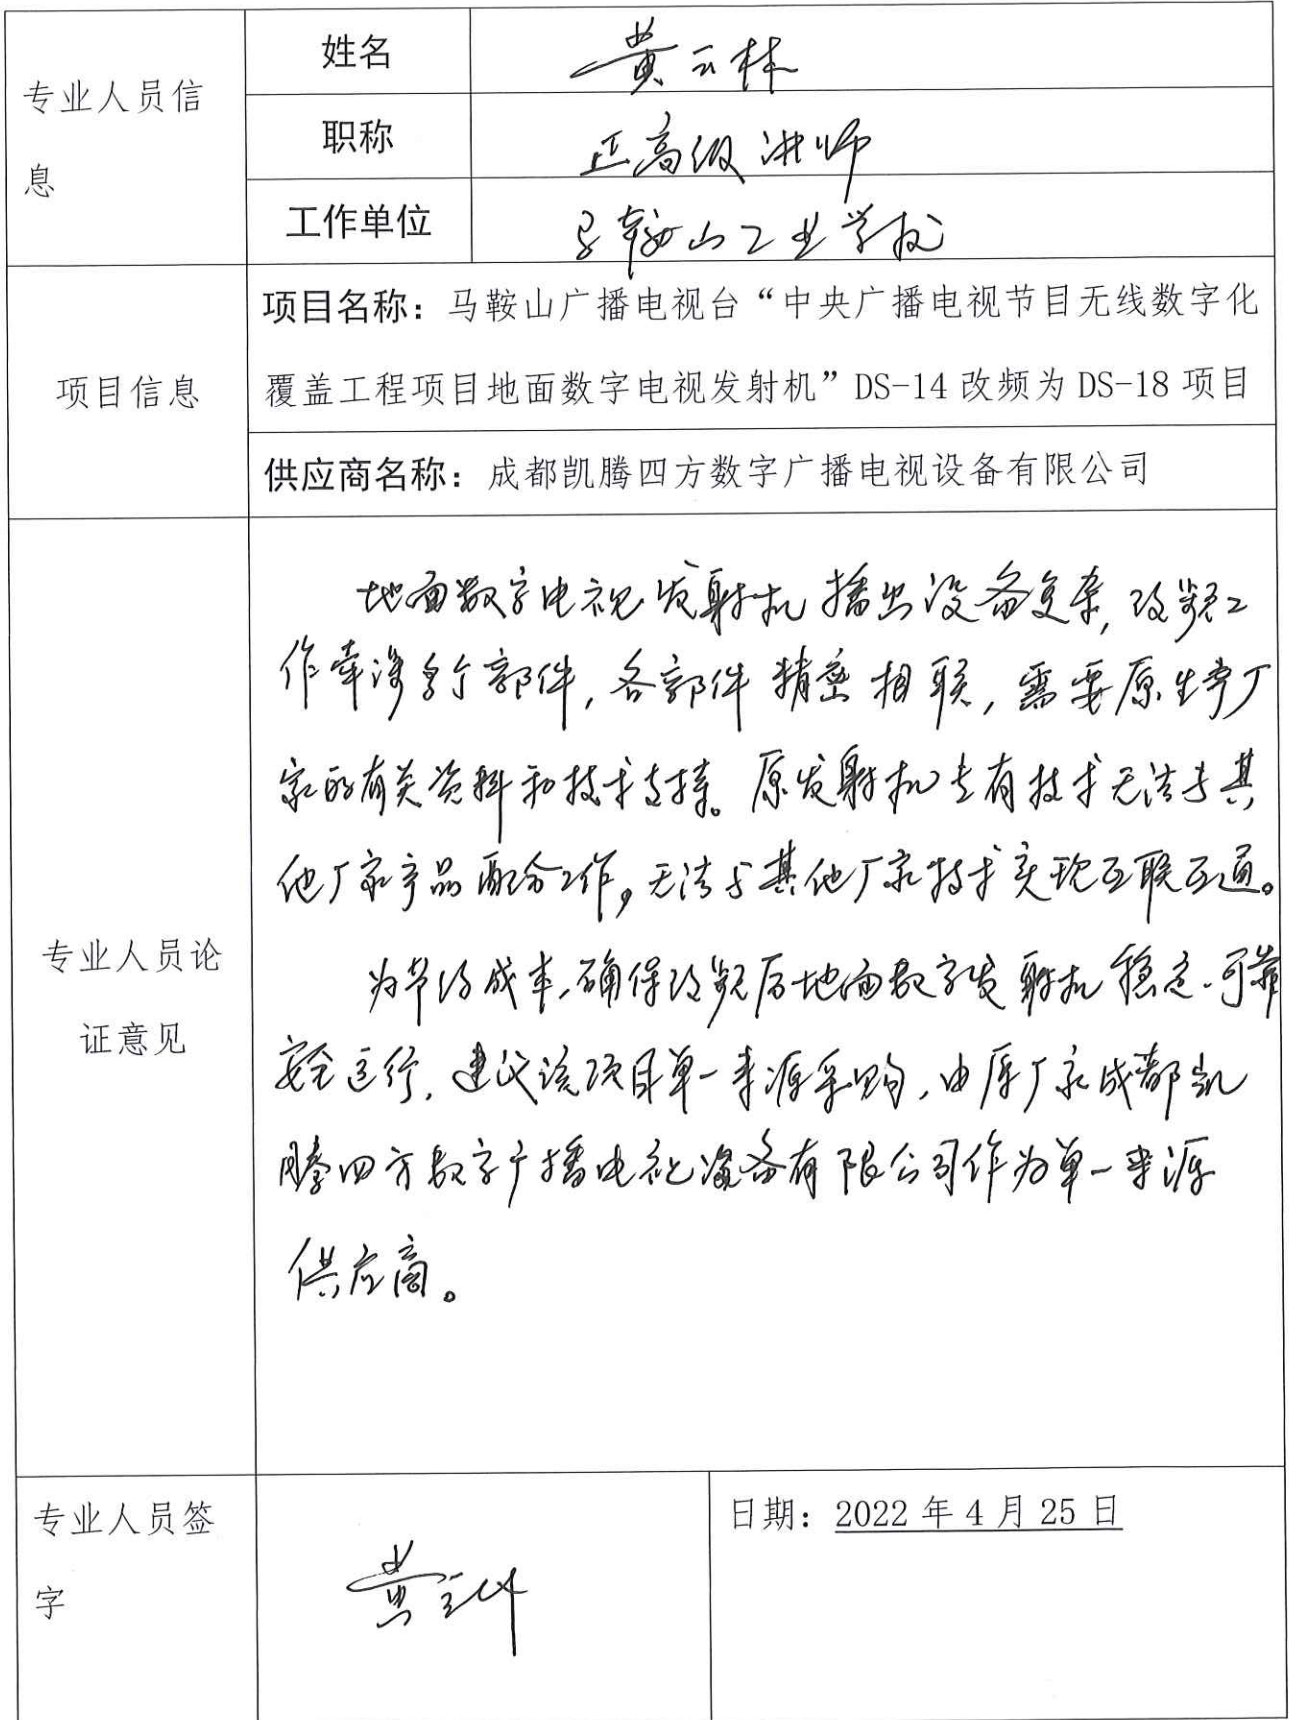 专业人员信息
姓名
黄云林
职称
正高级讲师
工作单位
马鞍山工业学校
项目信息
项目名称：马鞍山广播电视台“中央广播电视节目无线数字化
覆盖工程项目地面数字电视发射机”DS-14 改频为 DS-18 项目
供应商名称：成都凯腾四方数字广播电视设备有限公司
专业人员论
证意见
地面数字电视发射机播出设备复杂，改频工
作牵涉多个部件，各部件精密相联，需要原生产厂
家的有关资料和技术支持。原发射机专有技术无法与其
他厂家产品配合工作，无法与其他厂家技术实现互联互通。
为节约成本，确保改频后地面数字发射机稳定、可靠
安全运行，建议该项目单一来源采购，由原厂家成都凯
腾四方数字广播电视设备有限公司作为单一来源
供应商。
专业人员签
字
黄云林
日期：2022 年 4 月 25 日